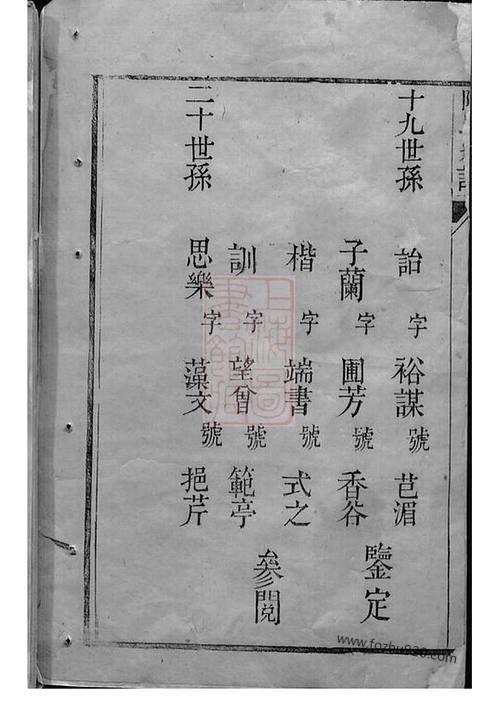 十九世孫 詒 字 裕謀 號 芑湄
子蘭 字 圃芳 號 香谷
鑒定
楷 字 端書 號 式之
訓 字 望曾 號 範亭
參閱
二十世孫 思樂 字 藻文 號 挹芹
上海圖書館藏
www.fozhu920.com